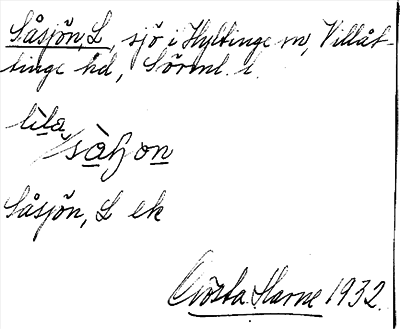 Såsjön, L, sjö i Hyltinge sn, Villåt-
tinge hd, Sörml. l.
lìla
/sàʃʒon
Såsjön, L ek
Gösta Harne 1932.